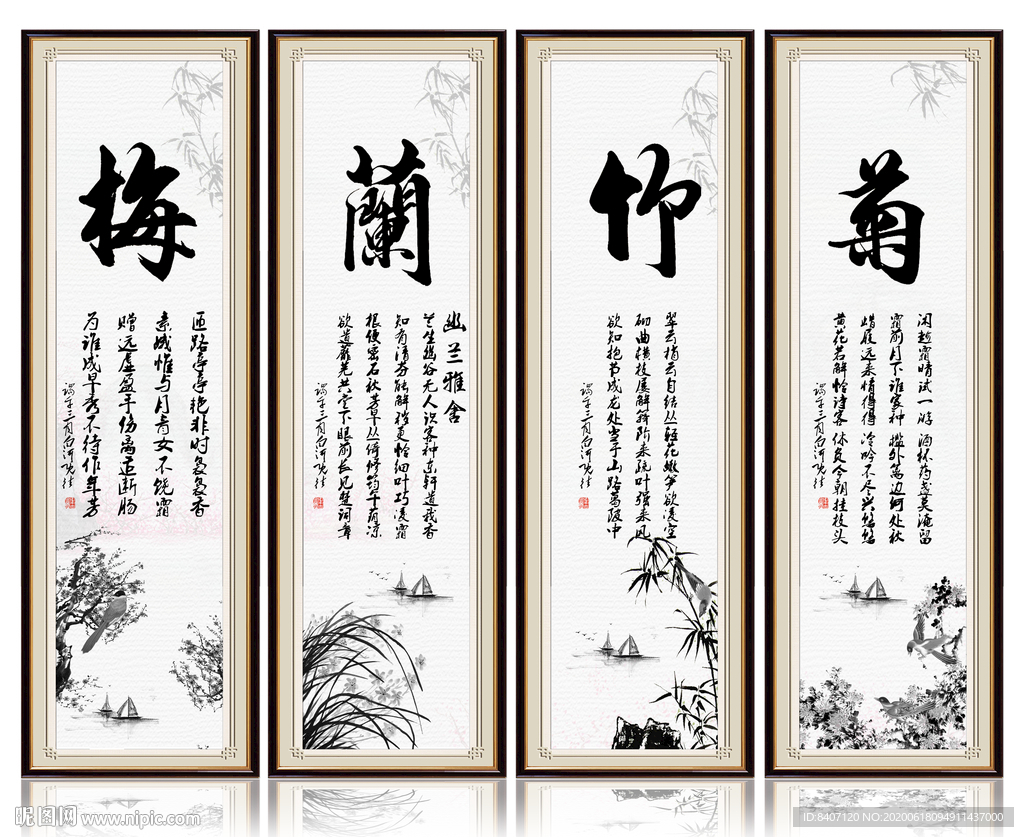 梅
匝路亭亭艳非时裛裛香
素娥惟与月青女不饶霜
赠远虚盈手伤离适断肠
为谁成早秀不待作年芳
蘭
幽兰雅舍
兰生幽谷无人识客种东轩遗我香
知有清芬能解秽更怜细叶巧凌霜
根便密石秋芳早丛倚修筠午荫凉
欲遗蘼芜共堂下眼前长见楚词章
竹
翠云梢云自结丛轻花嫩笋欲凌空
砌曲横枝屡解箨阶来疏叶强来风
欲知抱节成龙处当于山路葛陂中
菊
闲趁霜晴试一游 酒杯药盏莫淹留
霜前月下谁家种 槛外篱边何处秋
蜡屐远来情得得 冷吟不尽兴悠悠
黄花若解怜诗客 休负今朝挂枝头
昵图网 www.nipic.com
ID:8407120 NO:20200618094911437000